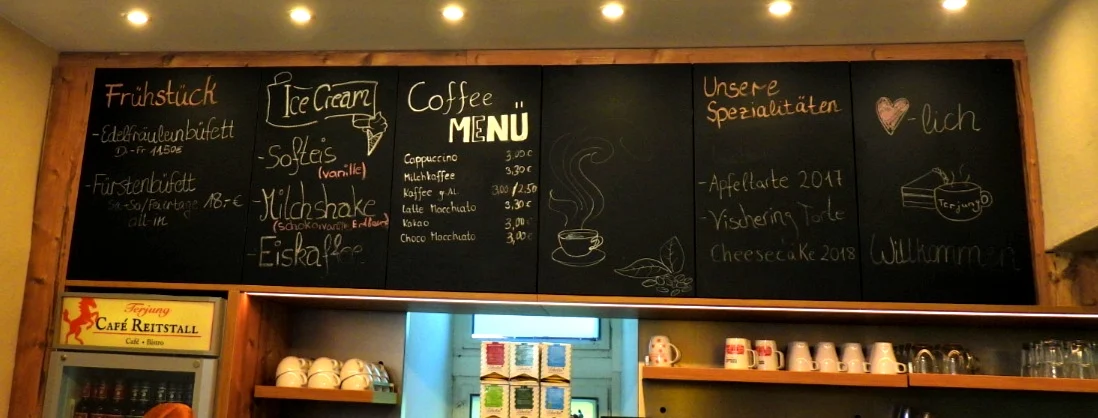 Frühstück
-Edelfräuleinbüfett
Di.-Fr 11,50€
-Fürstenbüfett
Sa.-So/Feiertage 18,-€
all-in
Ice Cream
-Softeis
(vanille)
-Milchshake
-Eiskaffee
Coffee
MENÜ
Cappuccino 3,00€
Milchkaffee 3,30€
Kaffee 3,00/2,50
Latte Macchiato 3,30€
Kakao 3,00€
Choco Macchiato 3,00€
Unsere
Spezialitäten
-Apfeltarte 2017
-Vischering Torte
Cheesecake 2018
-lich
Terjung
Willkommen
Terjung
CAFÉ REITSTALL
Café • Bistro